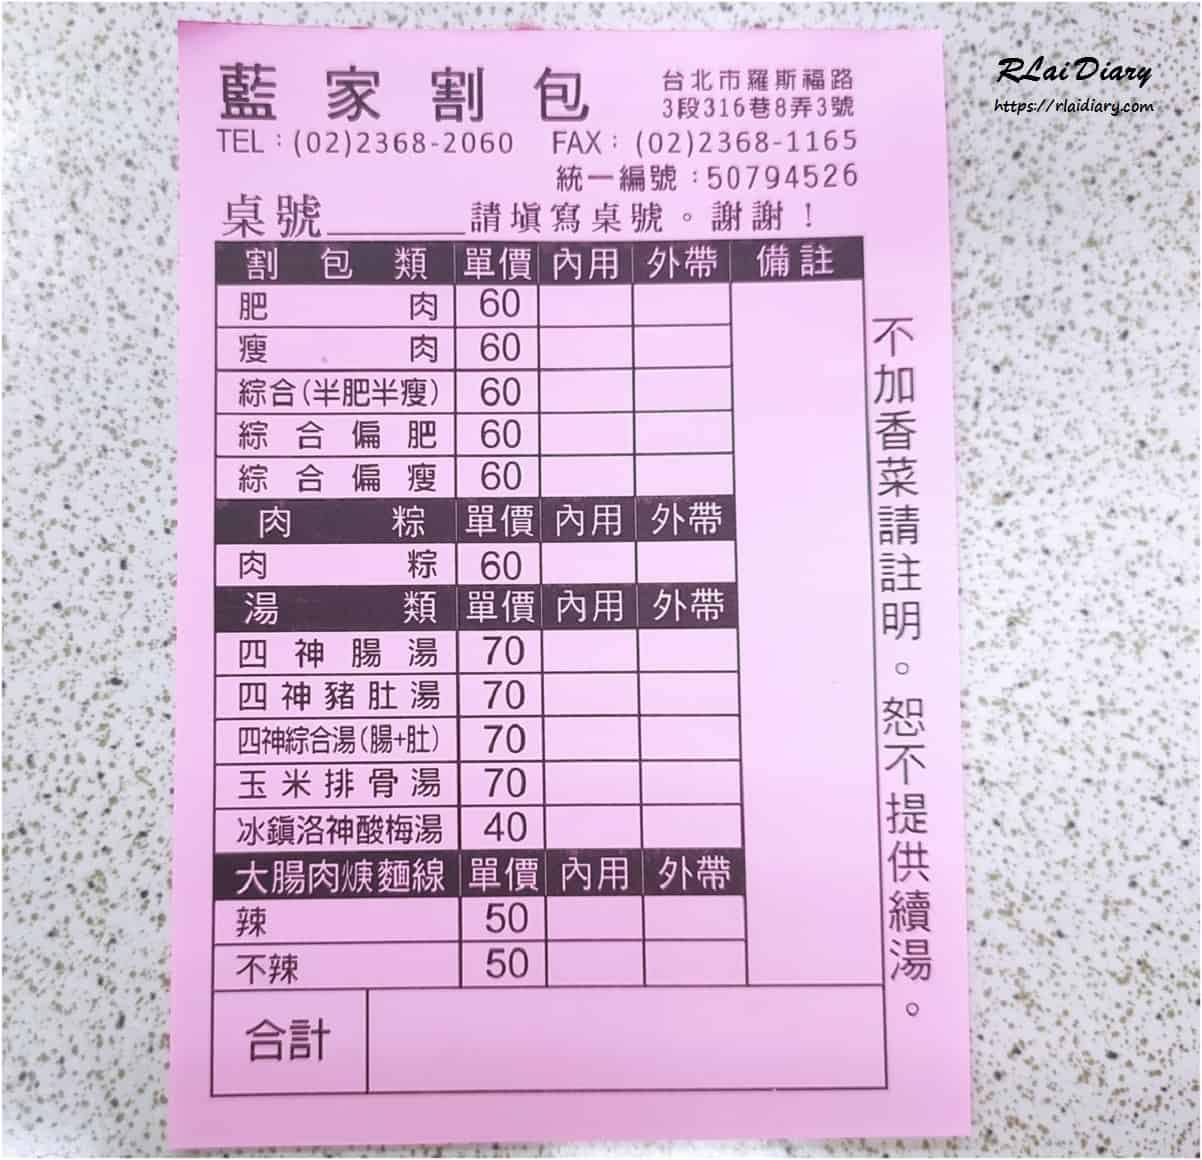 RLaiDiary
https://rlaidiary.com
藍家割包
台北市羅斯福路
3段316巷8弄3號
TEL:(02)2368-2060 FAX:(02)2368-1165
統一編號:50794526
桌號______請填寫桌號。謝謝!
割包類 單價 內用 外帶 備註
肥肉 60
瘦肉 60
綜合(半肥半瘦) 60
綜合偏肥 60
綜合偏瘦 60
肉粽 單價 內用 外帶
肉粽 60
湯類 單價 內用 外帶
四神腸湯 70
四神豬肚湯 70
四神綜合湯(腸+肚) 70
玉米排骨湯 70
冰鎮洛神酸梅湯 40
大腸肉焿麵線 單價 內用 外帶
辣 50
不辣 50
合計
不加香菜請註明。恕不提供續湯。